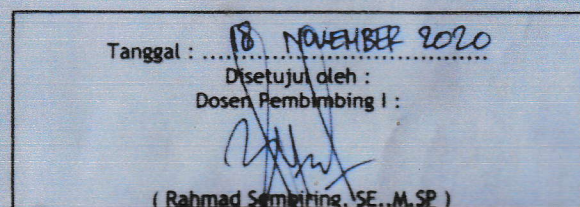 Tanggal : 18 NOVEMBER 2020
Disetujui oleh :
Dosen Pembimbing I :
( Rahmad Sembiring, SE., M.SP )